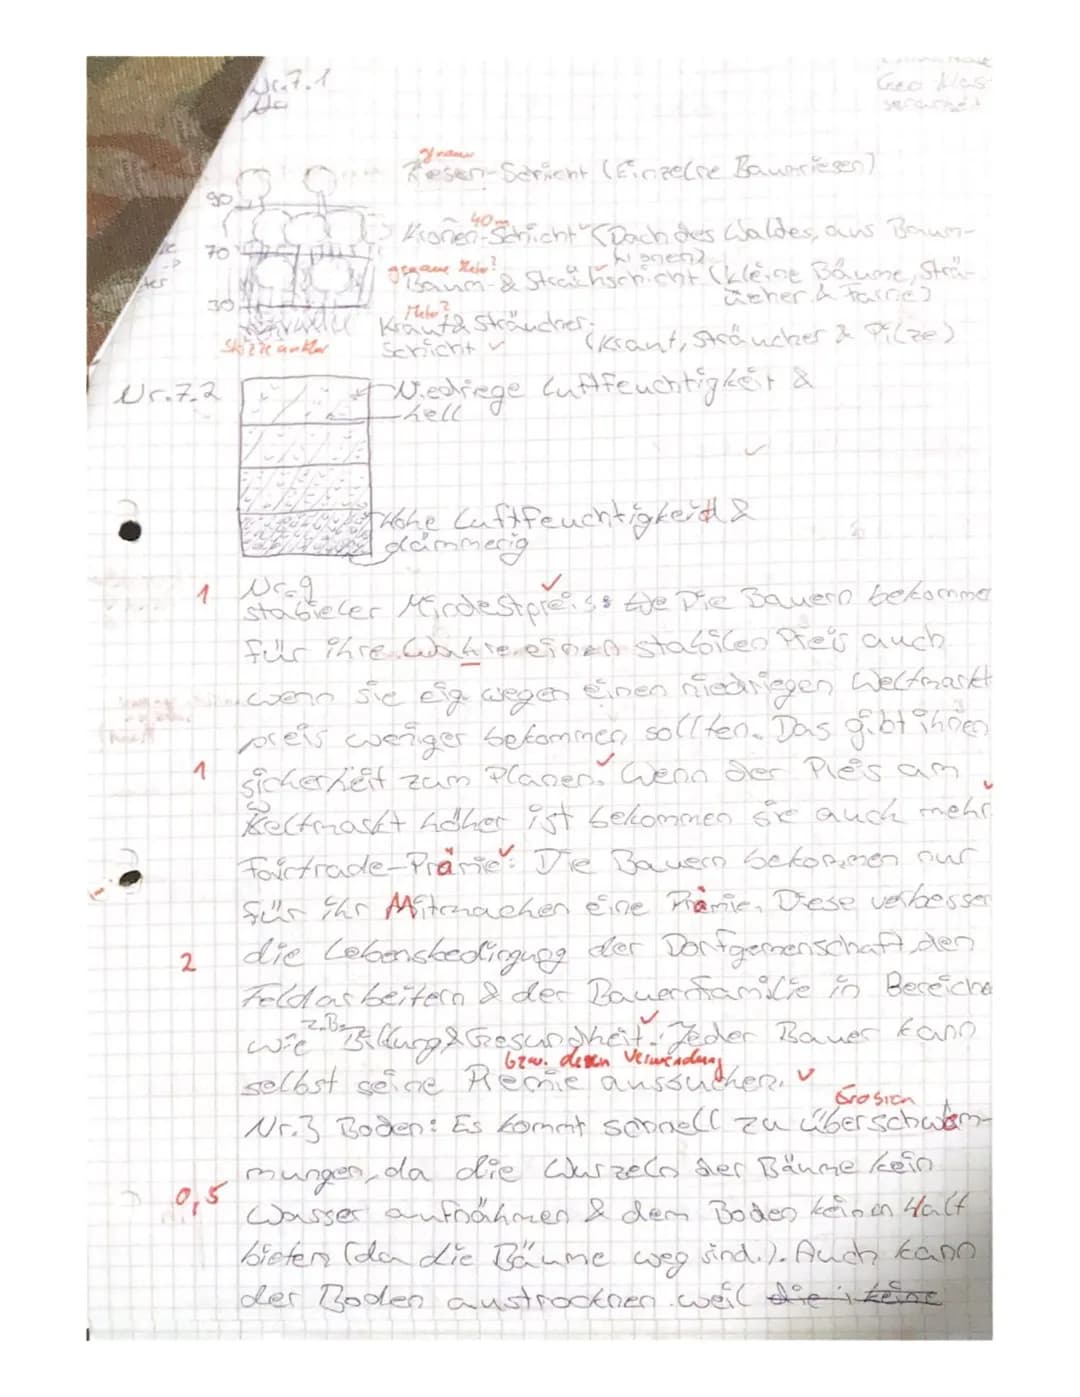 Nr.7.1
Geo Klas
senarbeit
genau
Riesen-Schicht (Einzelne Baumriesen)
90
40m
Kronen-Schicht (Dach des Waldes, aus Baum-
kronen)
70
genaue Meter?
Baum-& Strauchschicht (kleine Bäume, Sträu-
cher & Farne)
30
Meter?
Kraut& Sträucher-
Schicht (Kraut, Sträucher & Pilze)
Skizze unklar
Nr.7.2
Niedriege Luftfeuchtigkeit &
hell
Hohe Luftfeuchtigkeid &
dämmerig
1 Nr.9
stabieler Mindestpreis: Die Bauern bekomme
für ihre Wahre einen stabilen Preis auch
wenn sie eig. wegen einen niedriegen Weltmarkt
preis weniger bekommen sollten. Das gibt ihnen
1 sicherheit zum Planen. Wenn der Preis am
Weltmarkt höher ist bekommen sie auch mehr
Fairtrade-Prämie: Die Bauern bekommen nur
für ihr Mitmachen eine Prämie. Diese verbesser
2 die Lebensbedingung der Dorfgemenschaft, den
Feldarbeitern & der Bauernfamilie in Bereiche
wie z.B. Bildung & Gesundheit. Jeder Bauer kann
bzw. deren Verwendung
selbst seine Premie aussuchen.
Erosion
Nr.3 Boden: Es kommt schnell zu überschwäm-
mungen, da die Wurzeln der Bäume kein
0,5 Wasser aufnähmen & dem Boden keinen Halt
bieten (da die Bäume weg sind.). Auch kann
der Boden austrocknen weil die keine